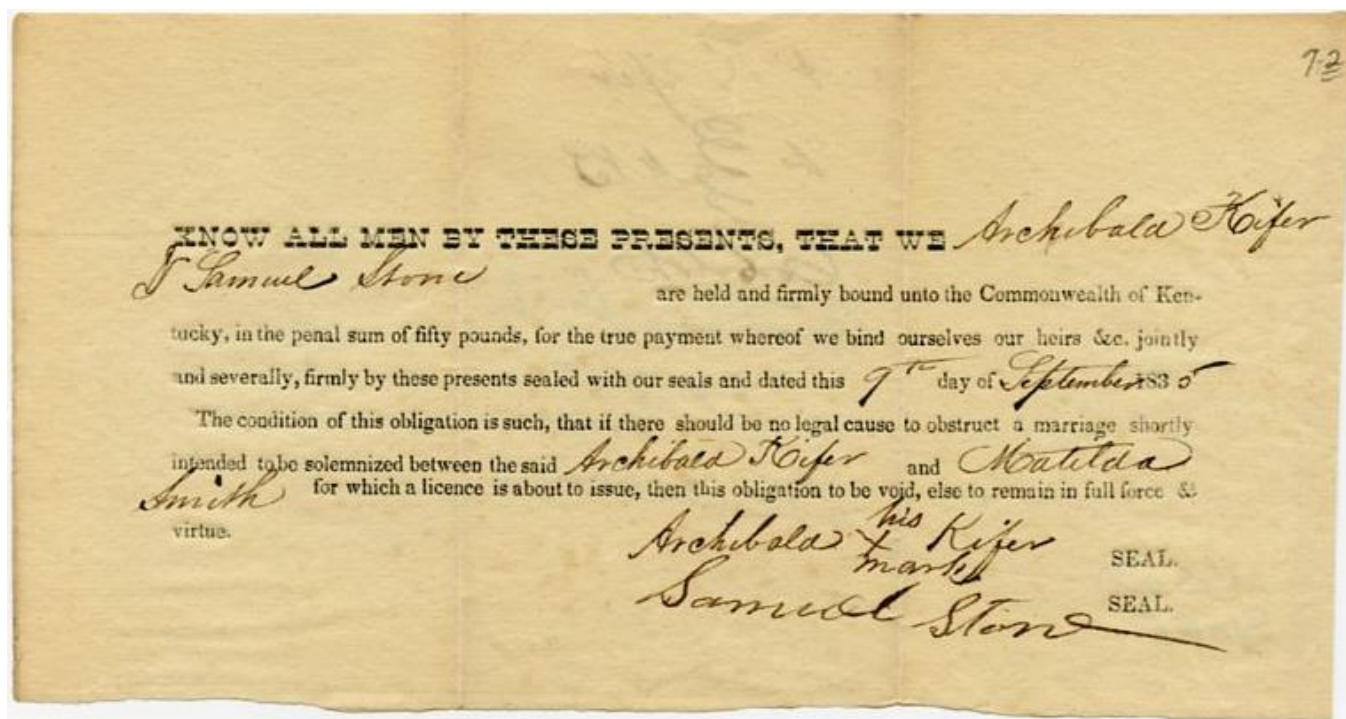 72
KNOW ALL MEN BY THESE PRESENTS, THAT WE Archibald Kifer
& Samuel Stone are held and firmly bound unto the Commonwealth of Ken-
tucky, in the penal sum of fifty pounds, for the true payment whereof we bind ourselves our heirs &c. jointly
and severally, firmly by these presents sealed with our seals and dated this 9th day of September 1835
The condition of this obligation is such, that if there should be no legal cause to obstruct a marriage shortly
intended to be solemnized between the said Archibald Kifer and Matilda
Smith for which a licence is about to issue, then this obligation to be void, else to remain in full force &
virtue.
his
Archibald x Kifer SEAL.
mark
Samuel Stone SEAL.